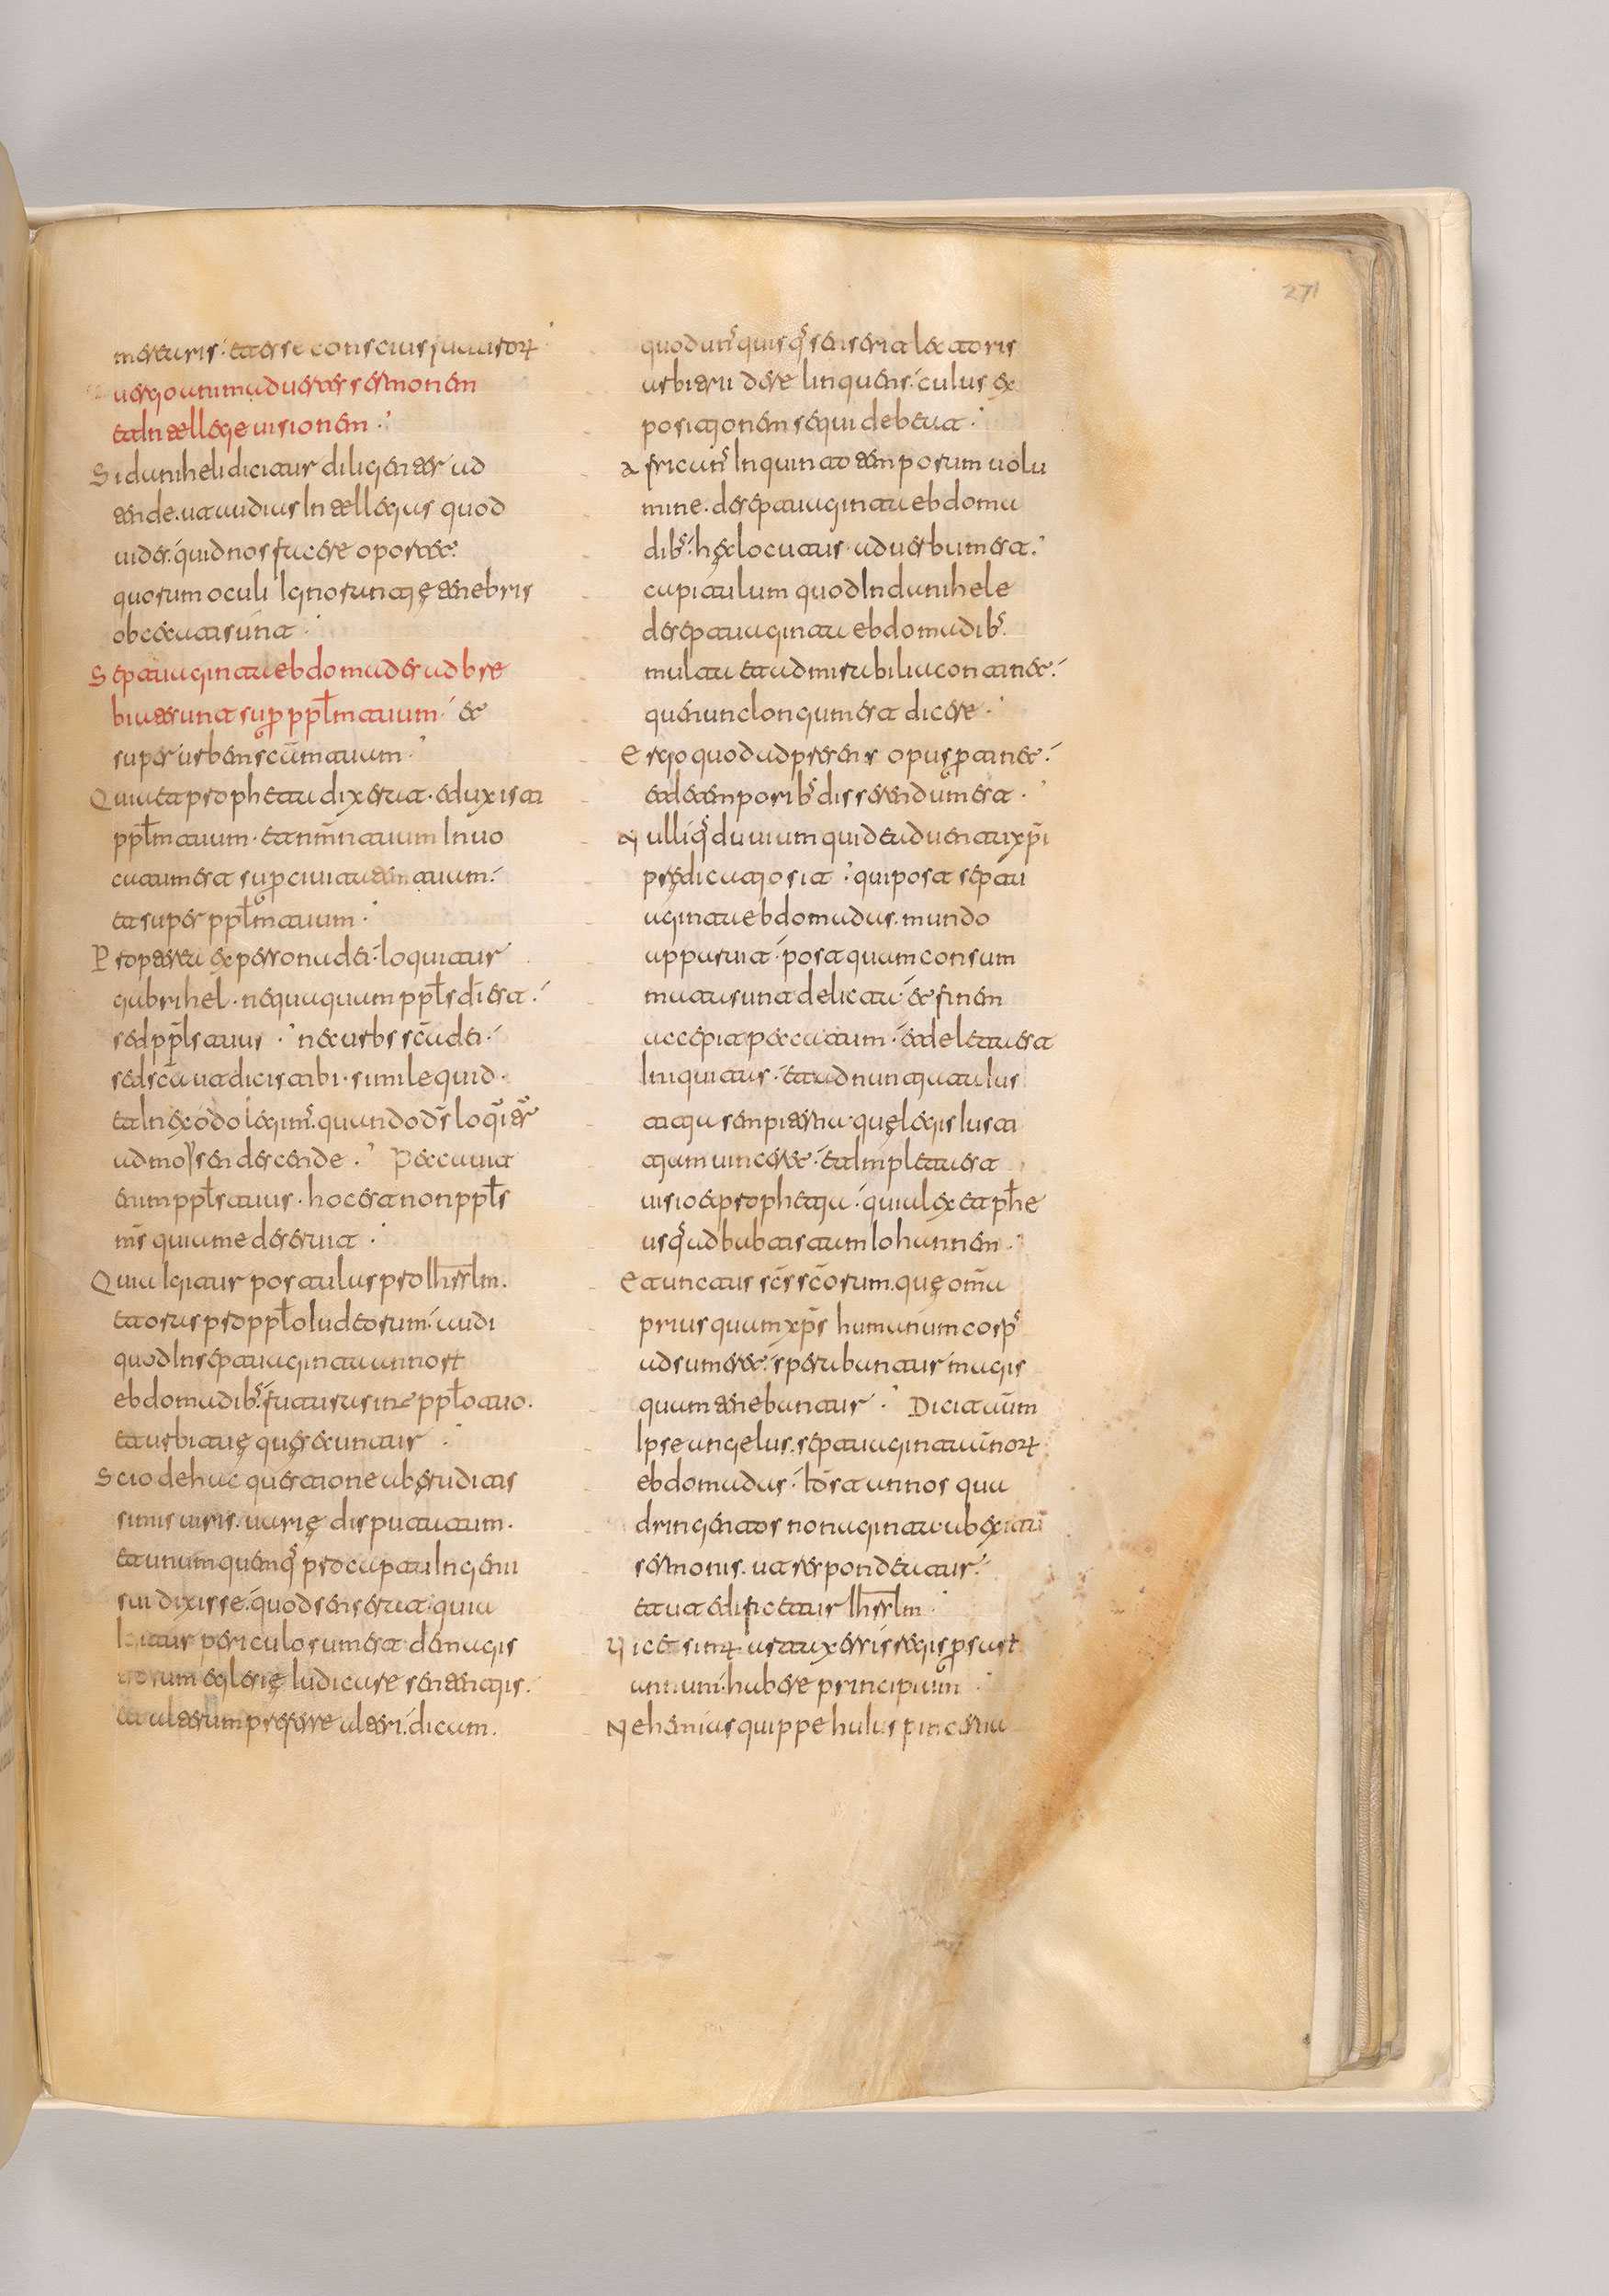 271
mereuris · et esse conscius futuroꝝ
ergo animaduerte sermonem
et intellege uisionem ·
Si danihel dicitur diligenter ad
tende · ut audias intellegas quod
uides · quid nos facere oportet ·
quorum oculi ignorantię tenebris
obcecati sunt ·
Septuaginta ebdomades adbre
biate sunt suꝑ ppłm tuum · et
super urbem sc̄m tuam ·
Quia et propheta dixerat · eduxisti
ppłm tuum · et nm̄n tuum inuo
catum est suꝑ ciuitatem tuam ·
et super ppłm tuum ·
Propterea ex persona dei · loquitur
gabrihel · nequaquam ppłs di est ·
sed pp̄ls tuus · nec urbs sc̄a dei ·
sed sc̄a ut dicis tibi · simile quid ·
et in exodo legim̄s · quando ds̄ loq̄it̄r
ad mosen descende · Peccauit
enim ppłs tuus · hoc est non ppłs
ms̄ quia me deseruit ·
Quia igitur postulas pro ihrslm ·
et oras pro ppło iudeorum · audi
quod in septuaginta annorū
ebdomadibꝰ · futurasint ppło tuo ·
et urbi tuę quę secuntur ·
Scio de hac questione ab eruditis
simis uiris · uarię disputatum ·
et unumquemqꝰ pro captu ingenii
sui dixisse · quod senserat · quia
igitur periculosum est de magis
trorum eglesię iudicare sententiis ·
et alterum preferre alteri · dicam ·
quod unꝰquisqꝰ senserit lectoris
arbitrii derelinquens · cuius ex
positionem sequi debeat ·
Africanꝰ in quinto temporum uolu
mine · de septuaginta ebdoma
dibꝰ · hęc locutus ad uerbum est ·
capitulum quod in danihele
de septuaginta ebdomadibꝰ ·
multa et admirabilia continet ·
que nunc longum est dicere ·
Ergo quod ad presens opus ꝑtinet ·
et de temporibꝰ disserendum est ·
Nulliqꝰ dubium quid de aduentu xp̄i
prędicatio sit · qui post septu
aginta ebdomadas · mundo
apparuit · post quam consum
mata sunt delicta · et finem
accepit peccatum · et deleta est
iniquitas · et adnuntiata ius
titia sempiterna · quę legis iusti
tiam uinceret · et impleta est
uisio et prophetia · quia lex et pr̄he
usqꝰ ad babtistam iohannem ·
Et unctus sc̄s sc̄orum · quę om̄a
prius quam xp̄s humanum corpꝰ
adsumeret · sperabantur magis
quam tenebantur · Dicit aūm
ipse angelus · septuaginta ān̄orꝝ
ebdomadas · id̄ est annos qua
dringentos nonaginta · ab exitū
sermonis · ut respondeatur ·
et ut edificetur ihrslm ·
Nehenias quippe huius pincerna